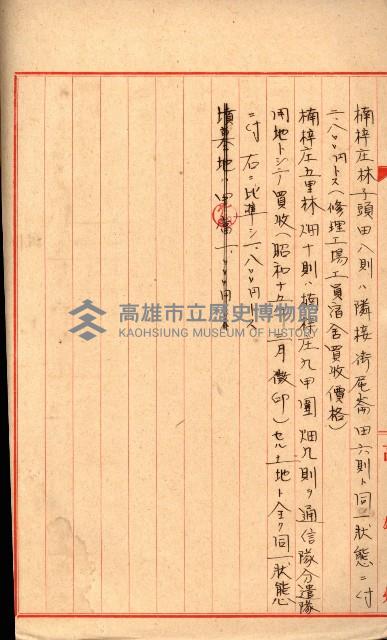 楠梓庄林子頭田八則ハ隣接街尾崙田六則ト同一狀態ニ付
二.八〇〇円トス(修理工場工員宿舍買收價格)
楠梓庄五里林畑十則ハ楠梓庄九甲圍畑九則ヲ通信隊分遣隊
用地トシテ買收(昭和十五年 月徵印)セル土地ト全ク同一狀態
ニ付右ニ比準シ一.八〇〇円トス
墳墓地ハ甲當一〇〇〇円
高雄市立歷史博物館
KAOHSIUNG MUSEUM OF HISTORY